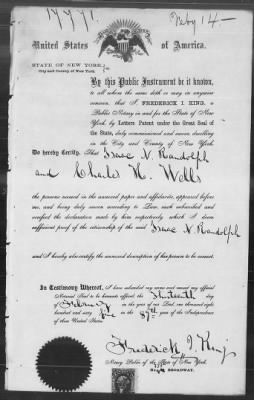 Feby 14 —
United States of America.
STATE OF NEW YORK,
City and County of New York.
By this Public Instrument be it known,
to all whom the same doth or may in anywise
concern, that I, FREDERICK I. KING,
a Public Notary in and for the State of New
York, by Letters Patent under the Great Seal of
the State, duly commissioned and sworn, dwelling
in the City and County of New York.
Do hereby Certify, That Isaac N. Randolph
and Charles H. Wells
the persons named in the annexed paper and affidavits, appeared before
me, and being duly sworn according to Law, each subscribed and
verified the declaration made by him respectively which I deem
sufficient proof of the citizenship of the said Isaac N. Randolph
and I hereby also certify the annexed description of his person to be correct.
In Testimony Whereof, I have subscribed my name and caused my official
Notarial Seal to be hereunto affixed, the thirteenth day
of February in the year of our Lord, one thousand eight
hundred and sixty in the 89th year of the Independence
of these United States.
Frederick I King
Notary Public of the State of New York.
BROADWAY.